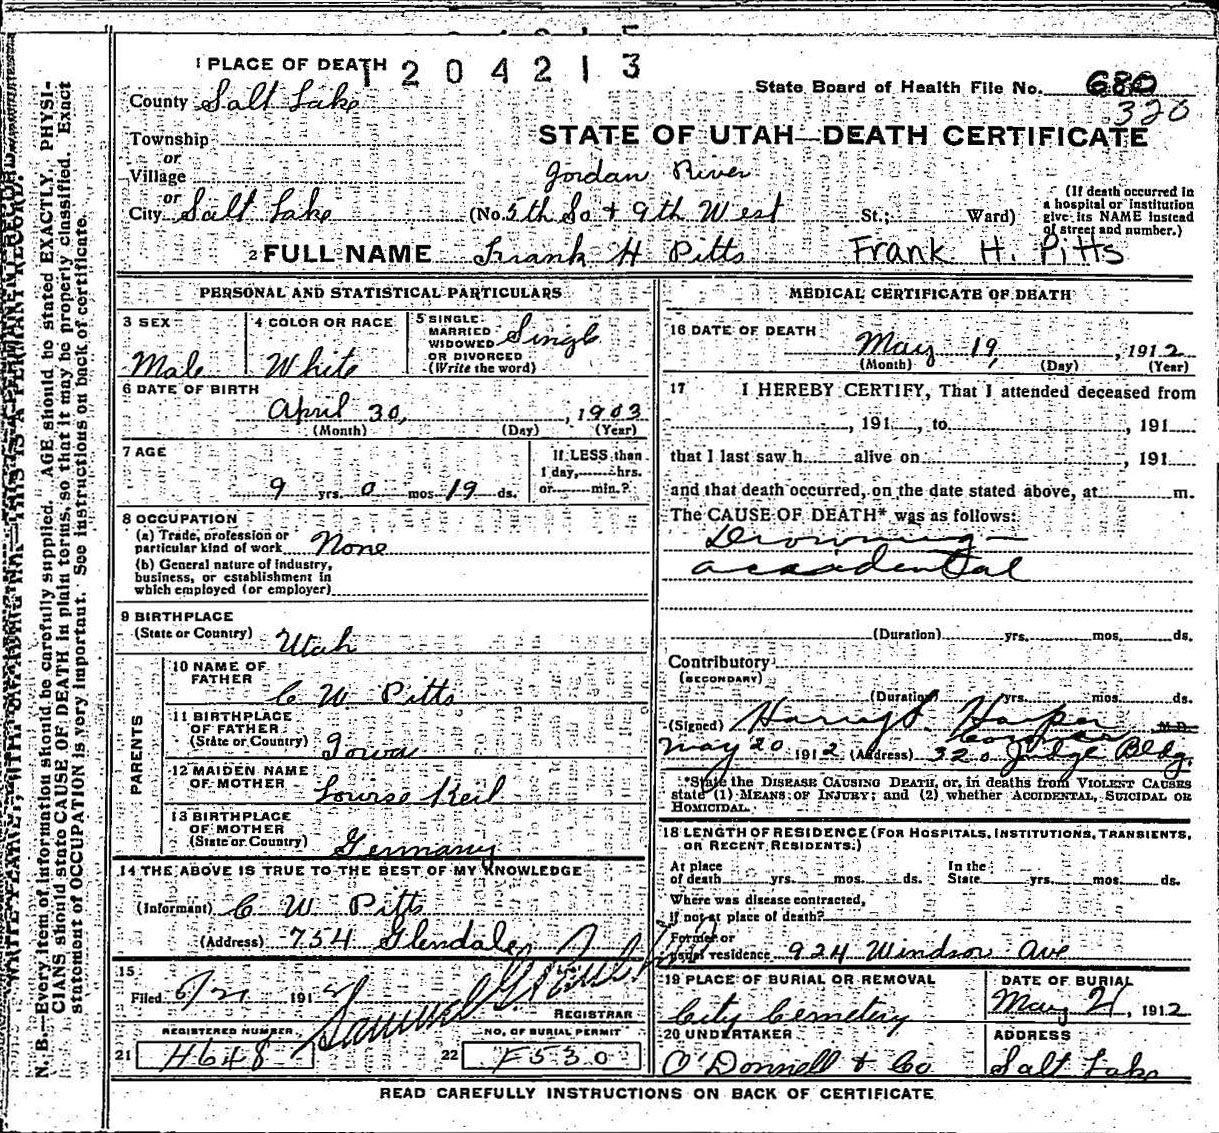 1 PLACE OF DEATH
1204213
County Salt Lake
State Board of Health File No. 680
320
Township
or
Village
or
City Salt Lake
STATE OF UTAH—DEATH CERTIFICATE
Jordan River
(No. 5th So + 9th West St.; Ward)
(If death occurred in
a hospital or institution
give its NAME instead
of street and number.)
2 FULL NAME Frank H Pitts Frank H. Pitts
PERSONAL AND STATISTICAL PARTICULARS
3 SEX
Male
4 COLOR OR RACE
White
5 SINGLE
MARRIED
WIDOWED
OR DIVORCED
(Write the word)
Single
6 DATE OF BIRTH
April 30, , 1903
(Month) (Day) (Year)
7 AGE
9 yrs. 0 mos. 19 ds.
If LESS than
1 day, hrs.
or min.?
8 OCCUPATION
(a) Trade, profession or
particular kind of work None
(b) General nature of industry,
business, or establishment in
which employed (or employer)
9 BIRTHPLACE
(State or Country) Utah
PARENTS
10 NAME OF
FATHER
C W Pitts
11 BIRTHPLACE
OF FATHER
(State or Country) Iowa
12 MAIDEN NAME
OF MOTHER
Louise Keil
13 BIRTHPLACE
OF MOTHER
(State or Country) Germany
14 THE ABOVE IS TRUE TO THE BEST OF MY KNOWLEDGE
(Informant) C W Pitts
(Address) 754 Glendale
15
Filed 5/21 1912
Samuel G.
REGISTRAR
REGISTERED NUMBER
21 H648
NO. OF BURIAL PERMIT
22 F530
MEDICAL CERTIFICATE OF DEATH
16 DATE OF DEATH
May 19, , 1912
(Month) (Day) (Year)
17 I HEREBY CERTIFY, That I attended deceased from
, 191 , to , 191
that I last saw h alive on , 191
and that death occurred, on the date stated above, at m.
The CAUSE OF DEATH* was as follows:
Drowning—
accidental
(Duration) yrs. mos. ds.
Contributory
(SECONDARY)
(Duration) yrs. mos. ds.
(Signed) Harry S. Harper M.D.
Coroner
May 20 1912 (Address) 320 Judge Bldg.
*State the DISEASE CAUSING DEATH, or, in deaths from VIOLENT CAUSES
state (1) MEANS OF INJURY; and (2) whether ACCIDENTAL, SUICIDAL OR
HOMICIDAL.
18 LENGTH OF RESIDENCE (FOR HOSPITALS, INSTITUTIONS, TRANSIENTS,
OR RECENT RESIDENTS.)
At place
of death yrs. mos. ds.
In the
State yrs. mos. ds.
Where was disease contracted,
if not at place of death?
Former or
usual residence 924 Windsor Ave
19 PLACE OF BURIAL OR REMOVAL
City Cemetery
DATE OF BURIAL
May 21, 1912
20 UNDERTAKER
O'Donnell + Co
ADDRESS
Salt Lake
READ CAREFULLY INSTRUCTIONS ON BACK OF CERTIFICATE
N. B.—Every item of information should be carefully supplied. AGE should be stated EXACTLY. PHYSI-
CIANS should state CAUSE OF DEATH in plain terms, so that it may be properly classified. Exact
statement of OCCUPATION is very important. See instructions on back of certificate.